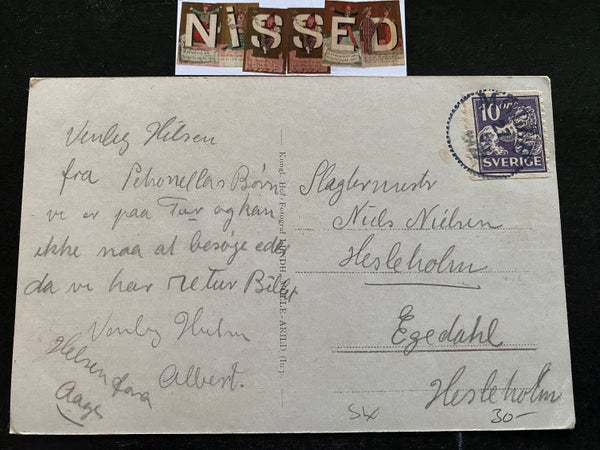 NiSSED
Venlig Hilsen
fra Petronellas Børn
vi er paa Tur og kan
ikke naa at besøge eder
da vi har retur Billet
Venlig Hilsen
Albert.
Hilsen fra
Aage
Kungl. Hof-Fotograf LINDH
ARILD
10 öre
SVERIGE
Slagtermestr
Niels Nielsen
Hesleholm
Egedahl
Hesleholm
30-